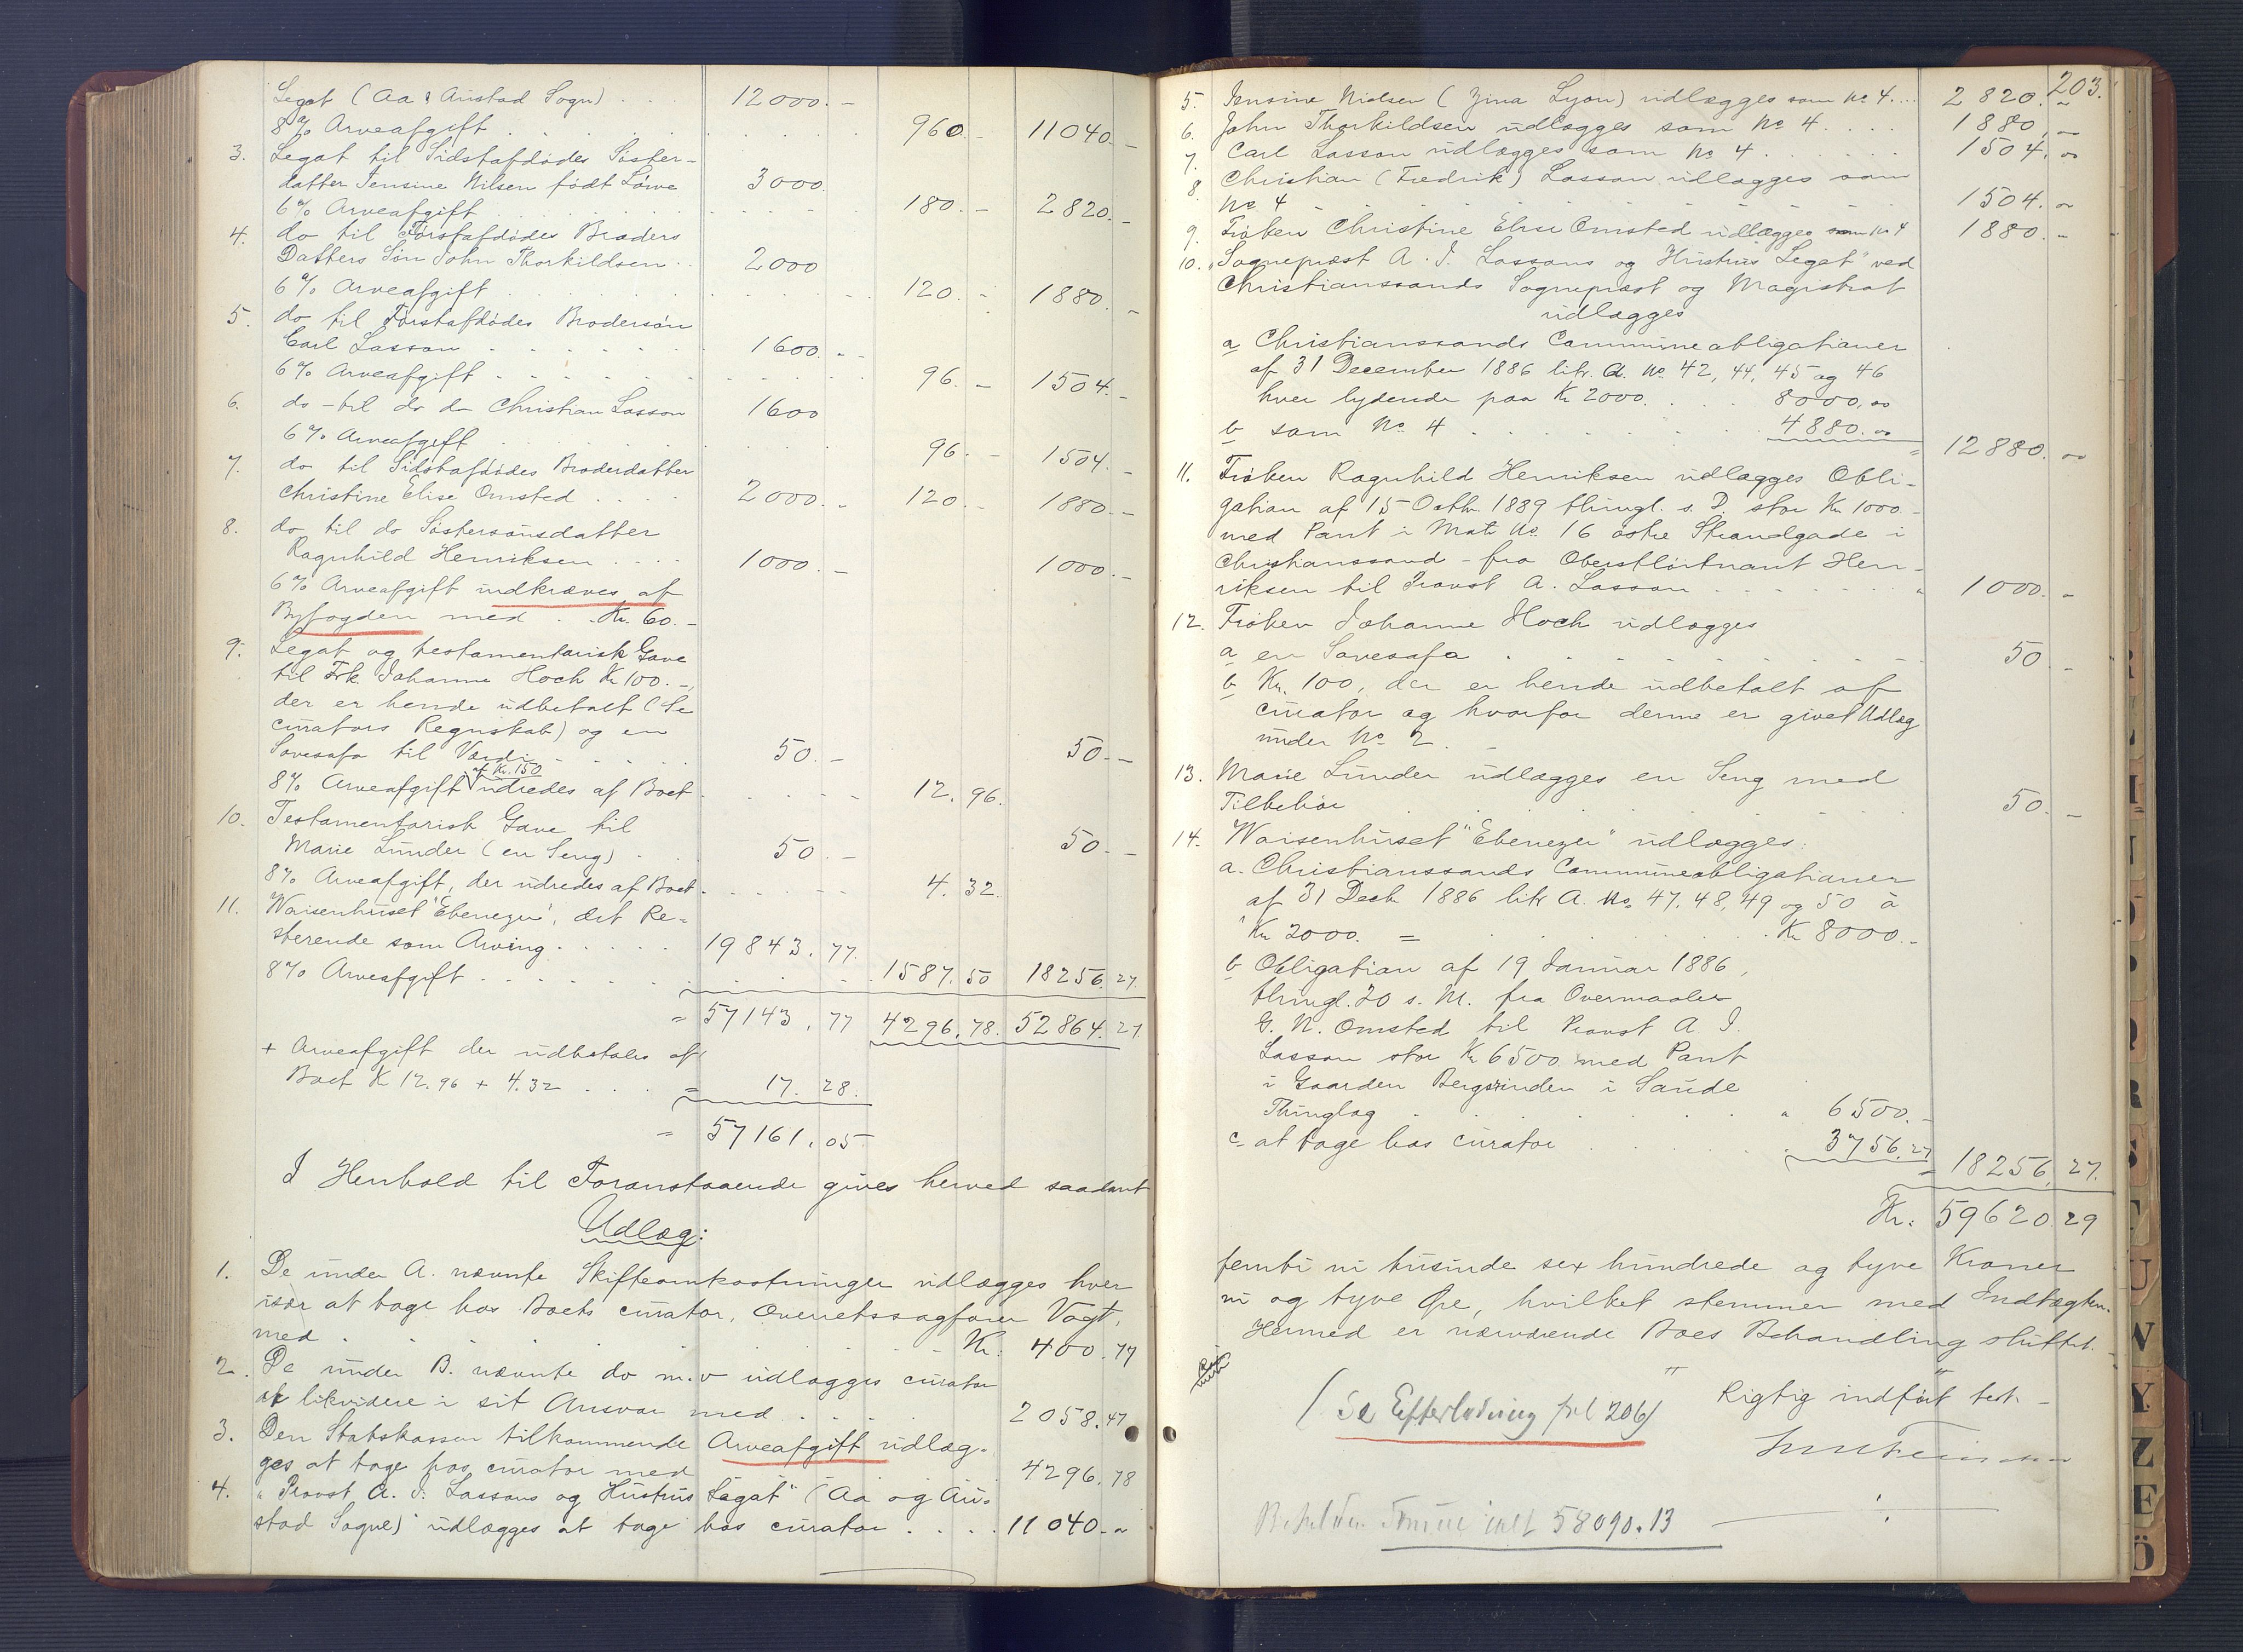 Legat (Aa & Austad Sogn) . . . 12000.-
8% Arveafgift . . . 960.- 11040.-
3. Legat til Sidstafdødes Søster-
datter Jensine Nilsen født Løwe 3000.
6% Arveafgift . . . 180.- 2820.-
4. do til Førstafdødes Broders
Datters Søn John Thorkildsen . . 2000
6% Arveafgift . . . 120.- 1880.-
5. do til Førstafdødes Brodersøn
Carl Lassen . . . 1600.-
6% Arveafgift . . . 96.- 1504.-
6. do - til do do Christian Lassen 1600
6% Arveafgift . . . 96.- 1504.-
7. do til Sidstafdødes Broderdatter
Christine Elise Omsted . . . 2000.- 120.- 1880.-
8. do til do Søstersønsdatter
Ragnhild Henriksen . . . 1000.- 1000.-
6% Arveafgift indkræves af
Byfogden med . . Kr. 60.-
9. Legat og testamentarisk Gave
til Frk. Johanne Hoch Kr 100.-,
der er hende udbetalt (Se
curators Regnskab) og en
Sovesofa til Værdi . . . 50.- 50.-
af Kr. 150
8% Arveafgift udredes af Boet . . . 12.96.
10. Testamentarisk Gave til
Marie Lunder (en Seng) . 50.- 50.-
8% Arveafgift, der udredes af Boet . . . 4.32.
11. Waisenhuset "Ebenezer", det Re-
sterende som Arving . . . 19843.77.
8% Arveafgift . . . 1587.50 18256.27.
= 57143.77 4296.78. 52864.27.
+ Arveafgift der udbetales af
Boet K 12.96 + 4.32 . . . = 17.28.
= 57161.05
I Henhold til Foranstaaende gives herved saadant
Udlæg:
1. De under A. nævnte Skifteomkostninger udlægges hver
især at tage hos Boets curator, Overretssagfører Vogt,
med . . . Kr. 400.77
2. De under B. nævnte do m.v udlægges curator
at likvidere i sit Ansvar med . . . 2058.47
3. Den Statskassen tilkommende Arveafgift udlæg-
ges at tage hos curator med 4296.78
4. "Provst A. J. Lassens og Hustrus Legat" (Aa og Au-
stad Sogne) udlægges at tage hos curator . . . 11040.-
203.
5. Jensine Nielsen (Zina Lyon) udlægges som No 4 . . . 2820.-
6. John Thorkildsen udlægges som No 4 . . . 1880.-
7. Carl Lassen udlægges som No 4 . . . 1504.oo
8. Christian (Fredrik) Lassen udlægges som
No 4 . . . 1504.-
9. Frøken Christine Elise Omsted udlægges som No 4 1880.-
10. "Sogneprest A. J. Lassens og Hustrus Legat" ved
Christianssands Sogneprest og Magistrat
udlægges
a Christianssands Communeobligationer
af 31 December 1886 litr. A. No. 42, 44, 45 og 46
hver lydende paa Kr 2000. . . . 8000.oo
b som No. 4 . . . 4880.oo = 12880.oo
11. Frøken Ragnhild Henriksen udlægges Obli-
gation af 15 Octbr. 1889 thingl. s. D. stor Kr. 1000.-
med Pant i Matr No. 16 østre Strandgade i
Christianssand - fra Oberstløitnant Hen-
riksen til Provst A. Lassen . . . 1000.-
12. Frøken Johanne Hoch udlægges
a en Sovesofa . . . 50.-
b Kr. 100, der er hende udbetalt af
curator og hvorfor denne er givet Udlæg
under No 2. -
13. Marie Lunder udlægges en Seng med
Tilbehør . . . 50.-
14. Waisenhuset "Ebenezer" udlægges:
a. Christianssands Communeobligationer
af 31 Decbr 1886 litr A. No. 47, 48, 49 og 50 à
Kr 2000. = . . . Kr 8000.-
b Obligation af 19 Januar 1886,
thingl. 20 s. M. fra Overmaaler
G. N. Omsted til Provst A. J.
Lassen stor Kr 6500 med Pant
i Gaarden Bergsinden i Saude
Thinglag . . . " 6500.-
c. at tage hos curator . . . 3756.27 = 18256.27.
Kr. 59620.29
femti ni tusinde sex hundrede og tyve Kroner
ni og tyve Øre, hvilket stemmer med Indtægten.
Hermed er nærværende Boes Behandling sluttet. -
(Se Efterlodning fol 206) Rigtig indført test. -
58090.13